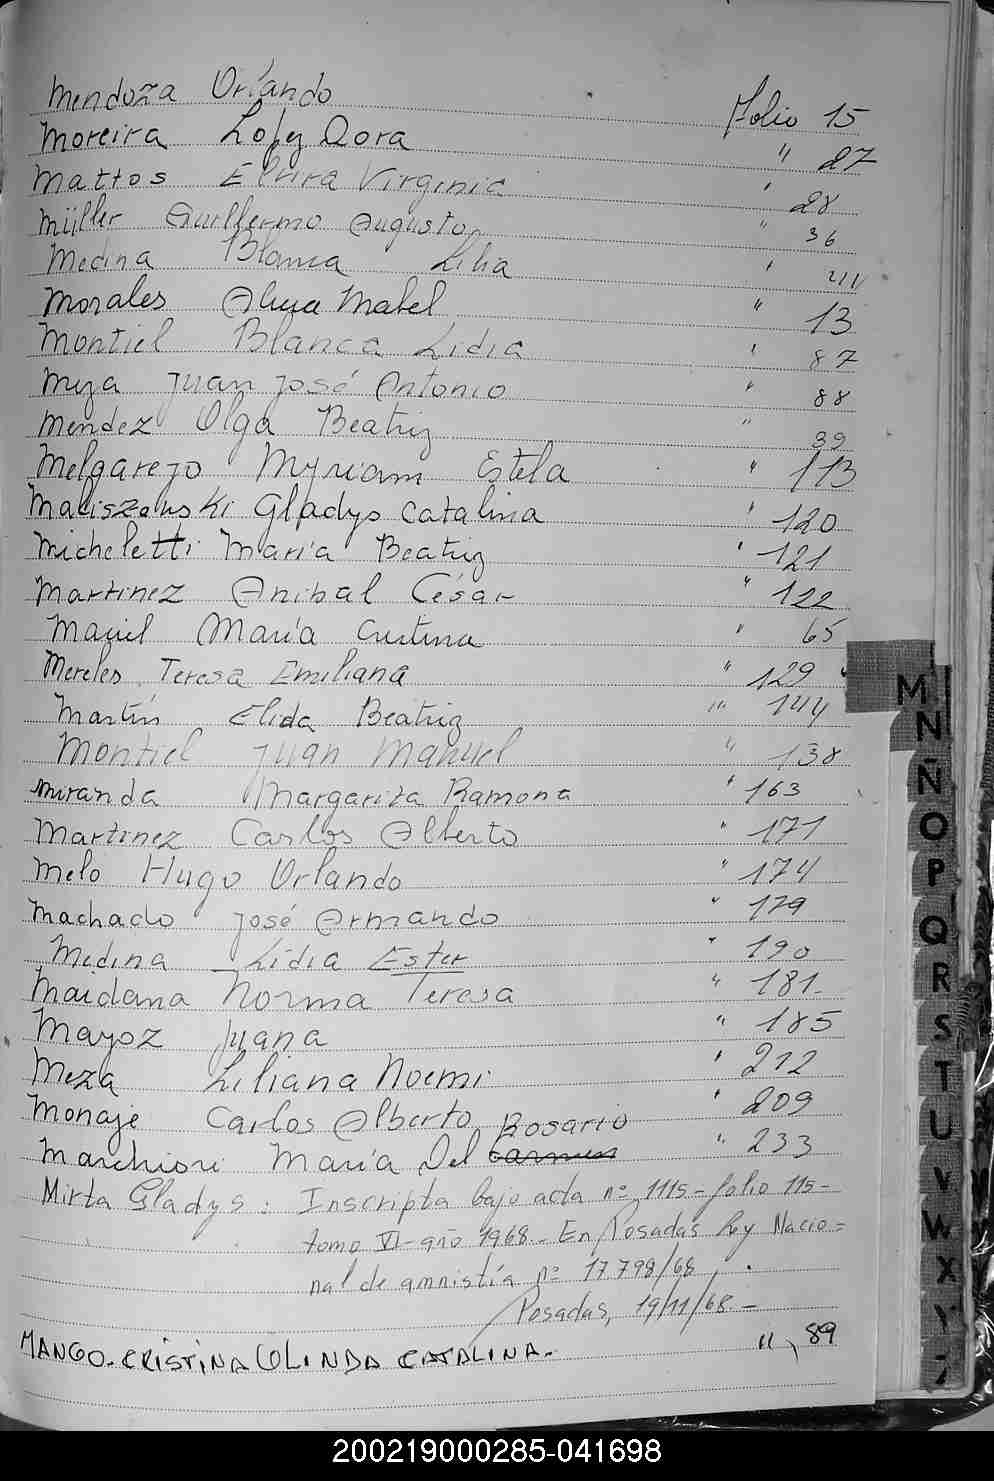 Mendoza Orlando Folio 15
Moreira Lopez Dora " 27
Mattos Elvira Virginia " 28
Müller Guillermo Augusto " 36
Medina Blanca Lilia "
Morales Alicia Mabel " 13
Montiel Blanca Lidia " 87
Meza Juan José Antonio " 88
Mendez Olga Beatriz " 39
Melgarejo Myriam Estela " 113
Maliszewski Gladys Catalina " 120
Micheletti María Beatriz " 121
Martinez Anibal César " 122
Maciel María Cristina " 65
Mereles Teresa Emiliana " 129
Martín Elida Beatriz " 144
Montiel Juan Manuel " 138
Miranda Margarita Ramona " 163
Martinez Carlos Alberto " 171
Melo Hugo Orlando " 174
Machado José Armando " 179
Medina Lidia Ester " 190
Maidana Norma Teresa " 181
Mayoz Juana " 185
Meza Liliana Noemi " 212
Monaje Carlos Alberto " 209
Rosario
Marchiori María Del Carmen " 233
Mirta Gladys: Inscripta bajo acta nº 1115 - folio 115 -
tomo VI - año 1968.- En Posadas Ley Nacio=
nal de amnistía nº 17.798/68.
Posadas, 19/11/68.-
MANGO. CRISTINA OLINDA CATALINA. " 89
M
N
Ñ
O
P
Q
R
S
T
U
V
W
X
Y
Z
200219000285-041698